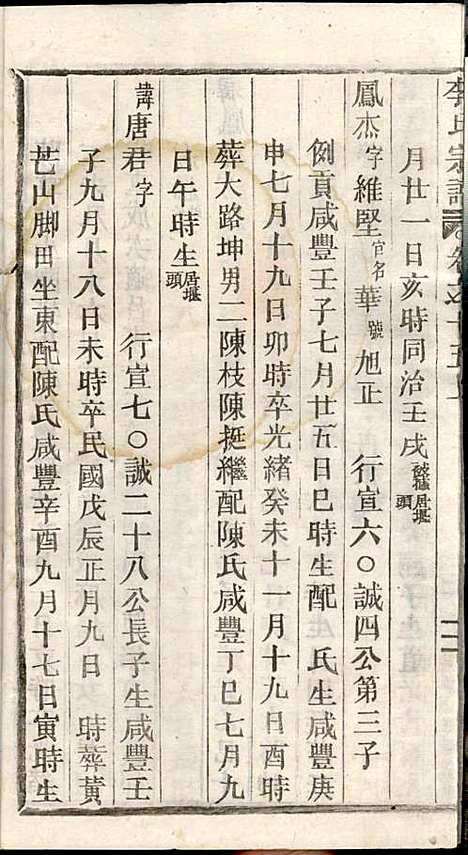 李氏宗譜
月廿一日亥時同治壬戌 居堰頭
鳳杰字維堅官名華號旭正 行宣六〇誠四公第三子
例貢咸豐壬子七月廿五日巳時生配 氏生咸豐庚
申七月十九日卯時卒光緒癸未十一月十九日酉時
葬大路坤男二陳枝陳挺繼配陳氏咸豐丁巳七月九
日午時生居堰頭
諱唐君字 行宣七〇誠二十八公長子生咸豐壬
子九月十八日未時卒民國戊辰正月九日 時葬黃
芒山脚田坐東配陳氏咸豐辛酉九月十七日寅時生